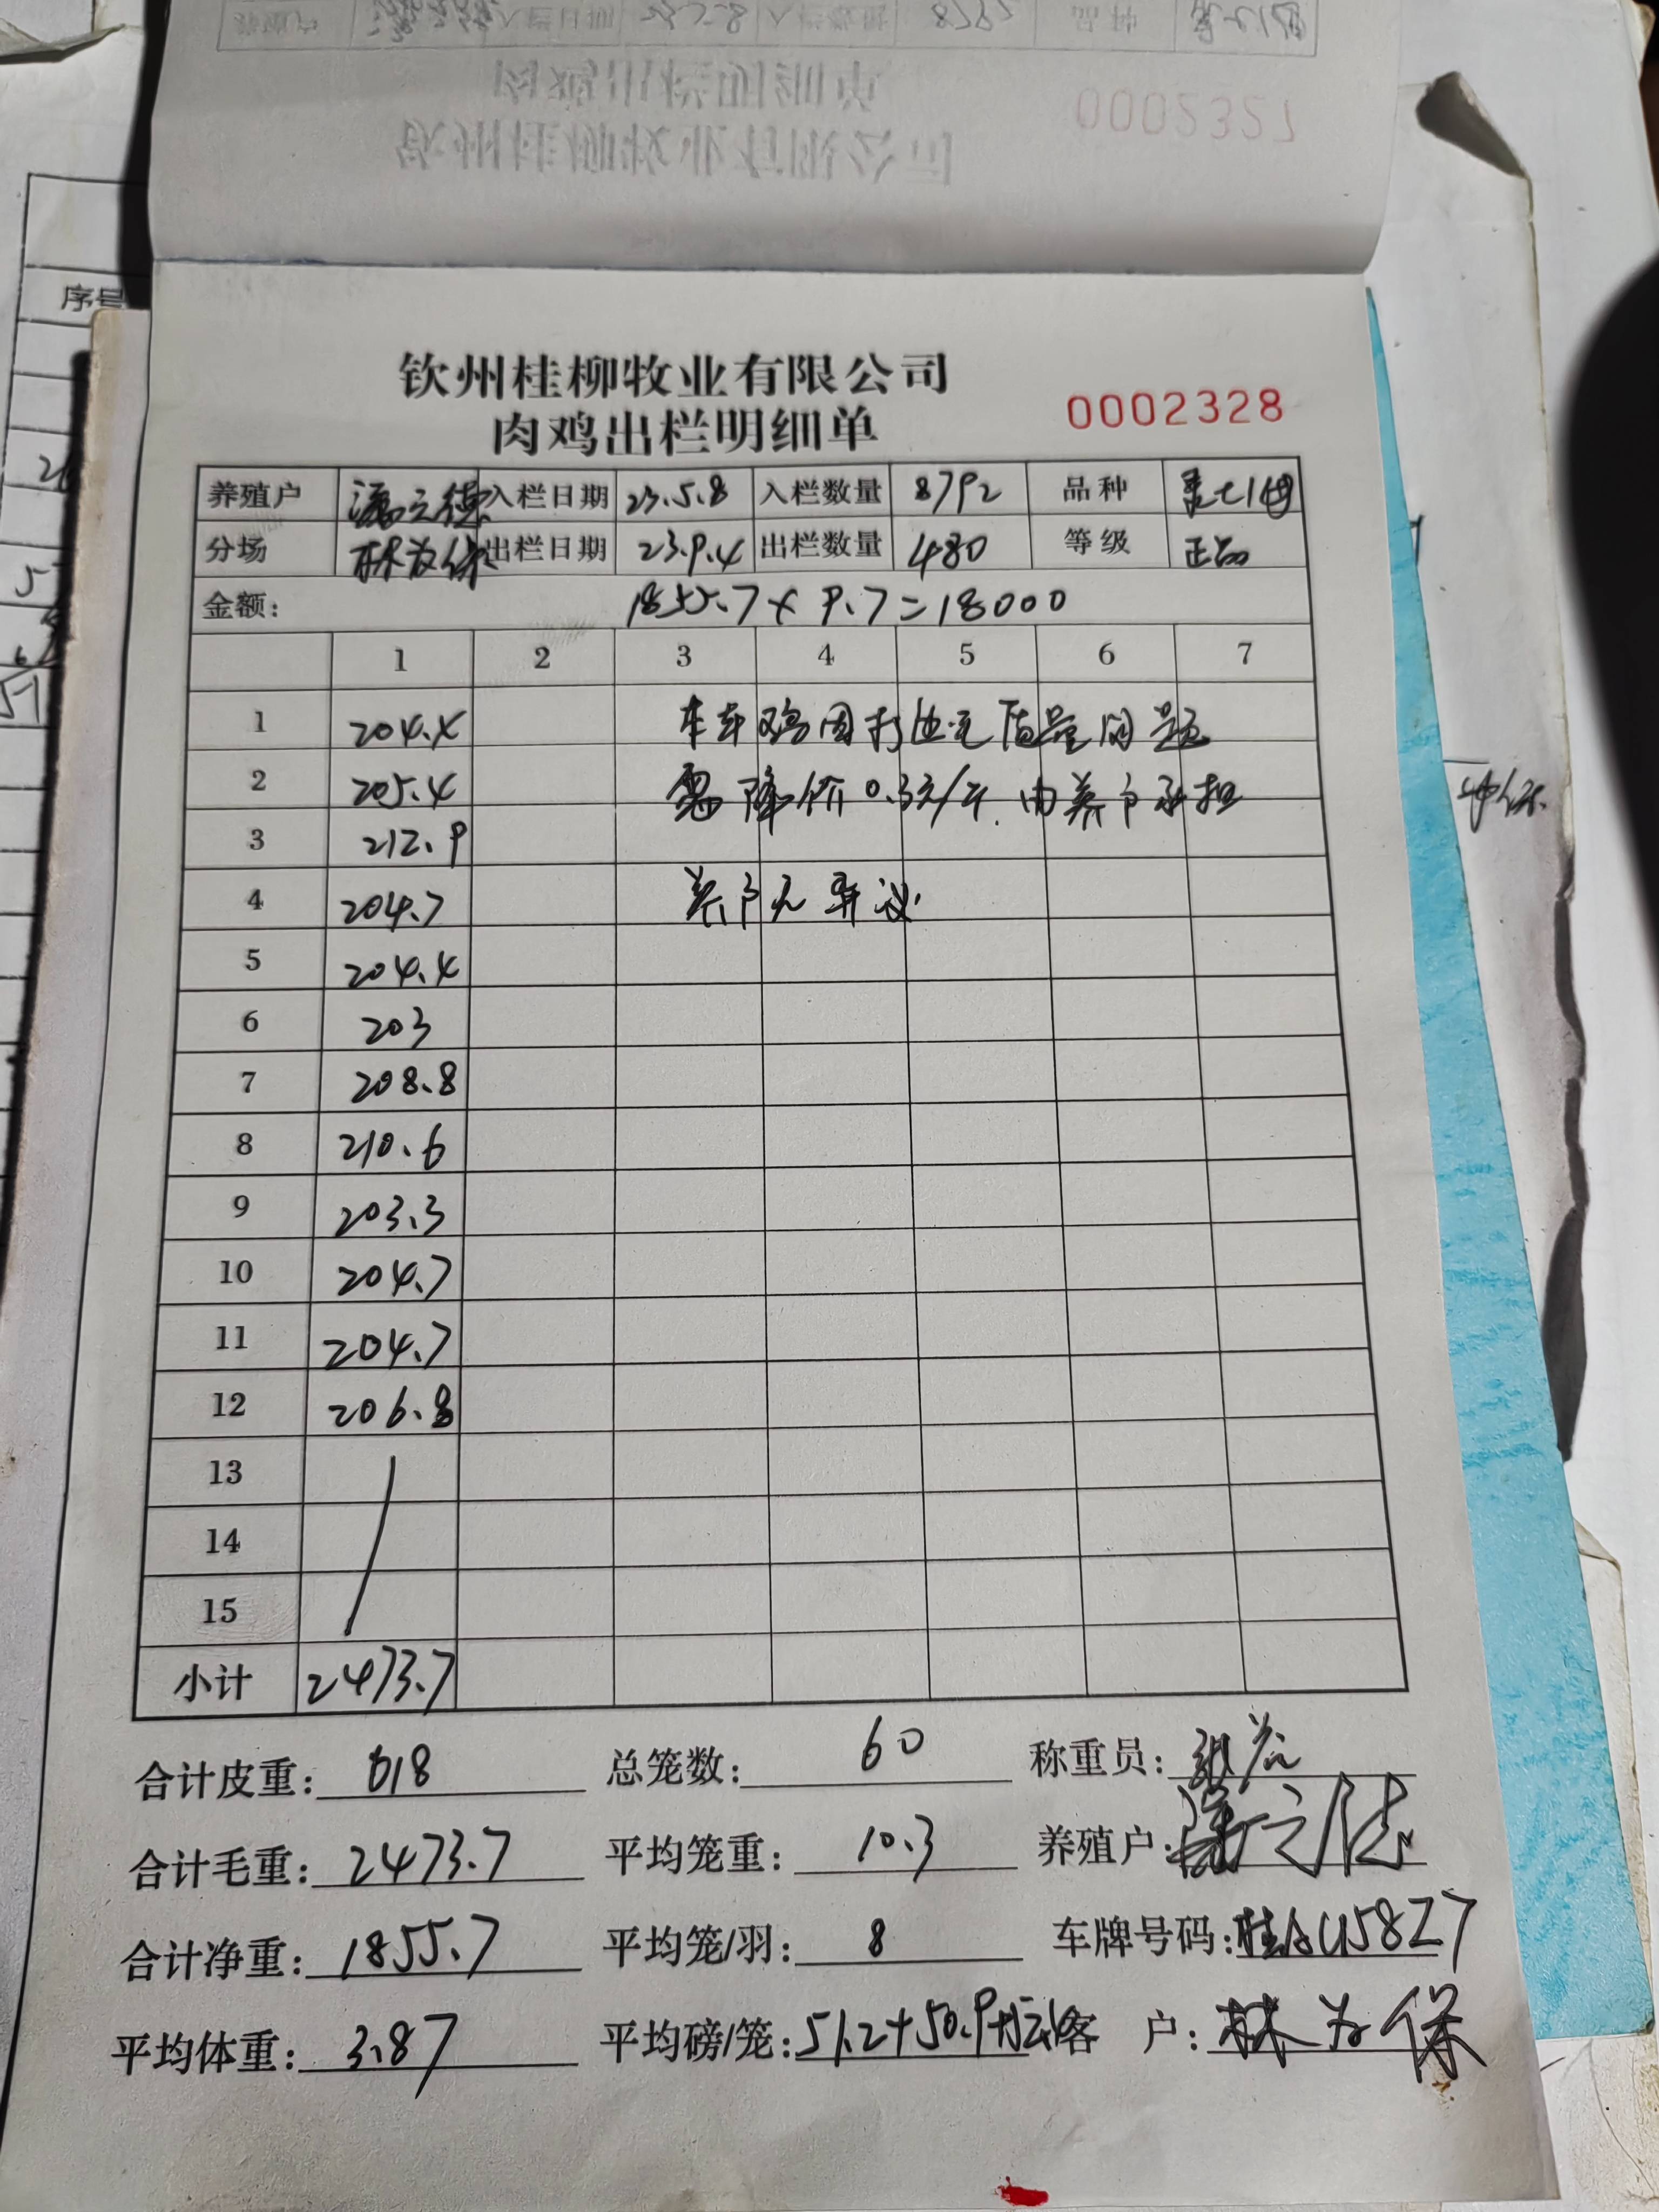 0002327
钦州桂柳牧业有限公司
肉鸡出栏明细单
0002328
养殖户 入栏日期 23.5.8 入栏数量 8792 品种
分场 林为保 出栏日期 23.9.4 出栏数量 480 等级 正品
金额: 1855.7×9.7=18000
1 2 3 4 5 6 7
1 204.4 本车鸡因打 毛质量问题
2 205.4 需降价0.3元/斤.由养户承担
3 212.9
4 204.7 养户无异议.
5 204.4
6 203
7 208.8
8 210.6
9 203.3
10 204.7
11 204.7
12 206.8
13
14
15
小计 2473.7
合计皮重: 618 总笼数: 60 称重员:
合计毛重: 2473.7 平均笼重: 10.3 养殖户:
合计净重: 1855.7 平均笼/羽: 8 车牌号码:
平均体重: 3.87 平均磅/笼: 51.2+50.9 客 户: 林为保
序号